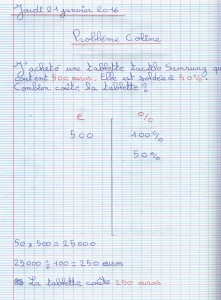 Jeudi 21 janvier 2016
Problème Coline
J'achète une tablette tactile Samsung qui
coûtent 500 euros. Elle est soldée à 50%.
Combien coûte la tablette ?
€ %
500 100%
50%
50 x 500 = 25000
25000 : 100 = 250 euros
La tablette coûte 250 euros